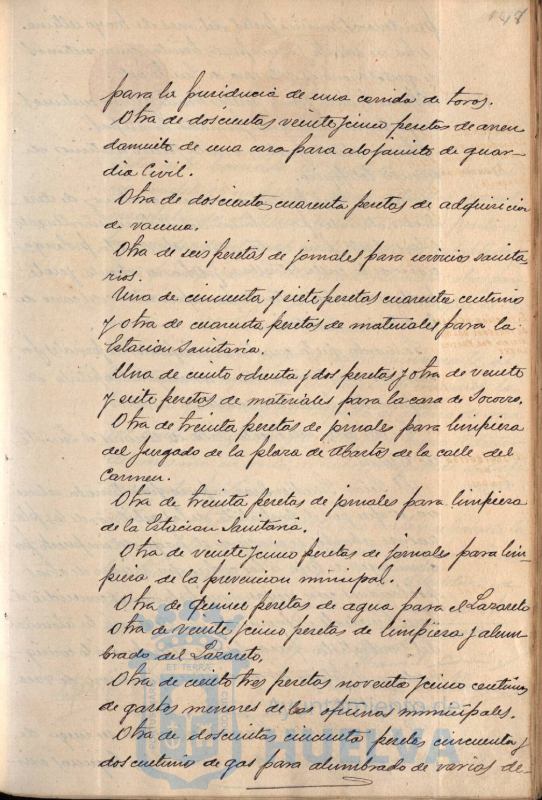 para la presidencia de una corrida de toros.
Otra de doscientas veinte y cinco pesetas de arren
damiento de una casa para alojamiento de guar-
dia Civil.
Otra de doscientas cuarenta pesetas de adquisicion
de vacuna.
Otra de seis pesetas de jornales para servicios sanita-
rios.
Una de cincuenta y siete pesetas cuarenta centimos
y otra de cuarenta pesetas de materiales para la
Estacion Sanitaria.
Una de ciento ochenta y dos pesetas y otra de veinte
y siete pesetas de materiales para la casa de Socorro.
Otra de treinta pesetas de jornales para limpieza
del Juzgado de la plaza de Abastos de la calle del
Carmen.
Otra de treinta pesetas de jornales para limpieza
de la Estacion Sanitaria.
Otra de veinte y cinco pesetas de jornales para lim-
pieza de la prevencion municipal.
Otra de quince pesetas de agua para el Lazareto
Otra de veinte y cinco pesetas de limpieza y alum-
brado del Lazareto.
Otra de ciento tres pesetas noventa y cinco centimos
de gastos menores de las oficinas municipales.
Otra de doscientas cincuenta pesetas cincuenta y
dos centimos de gas para alumbrado de varias de-
ET TERRA
Ayuntamiento de
HUELVA